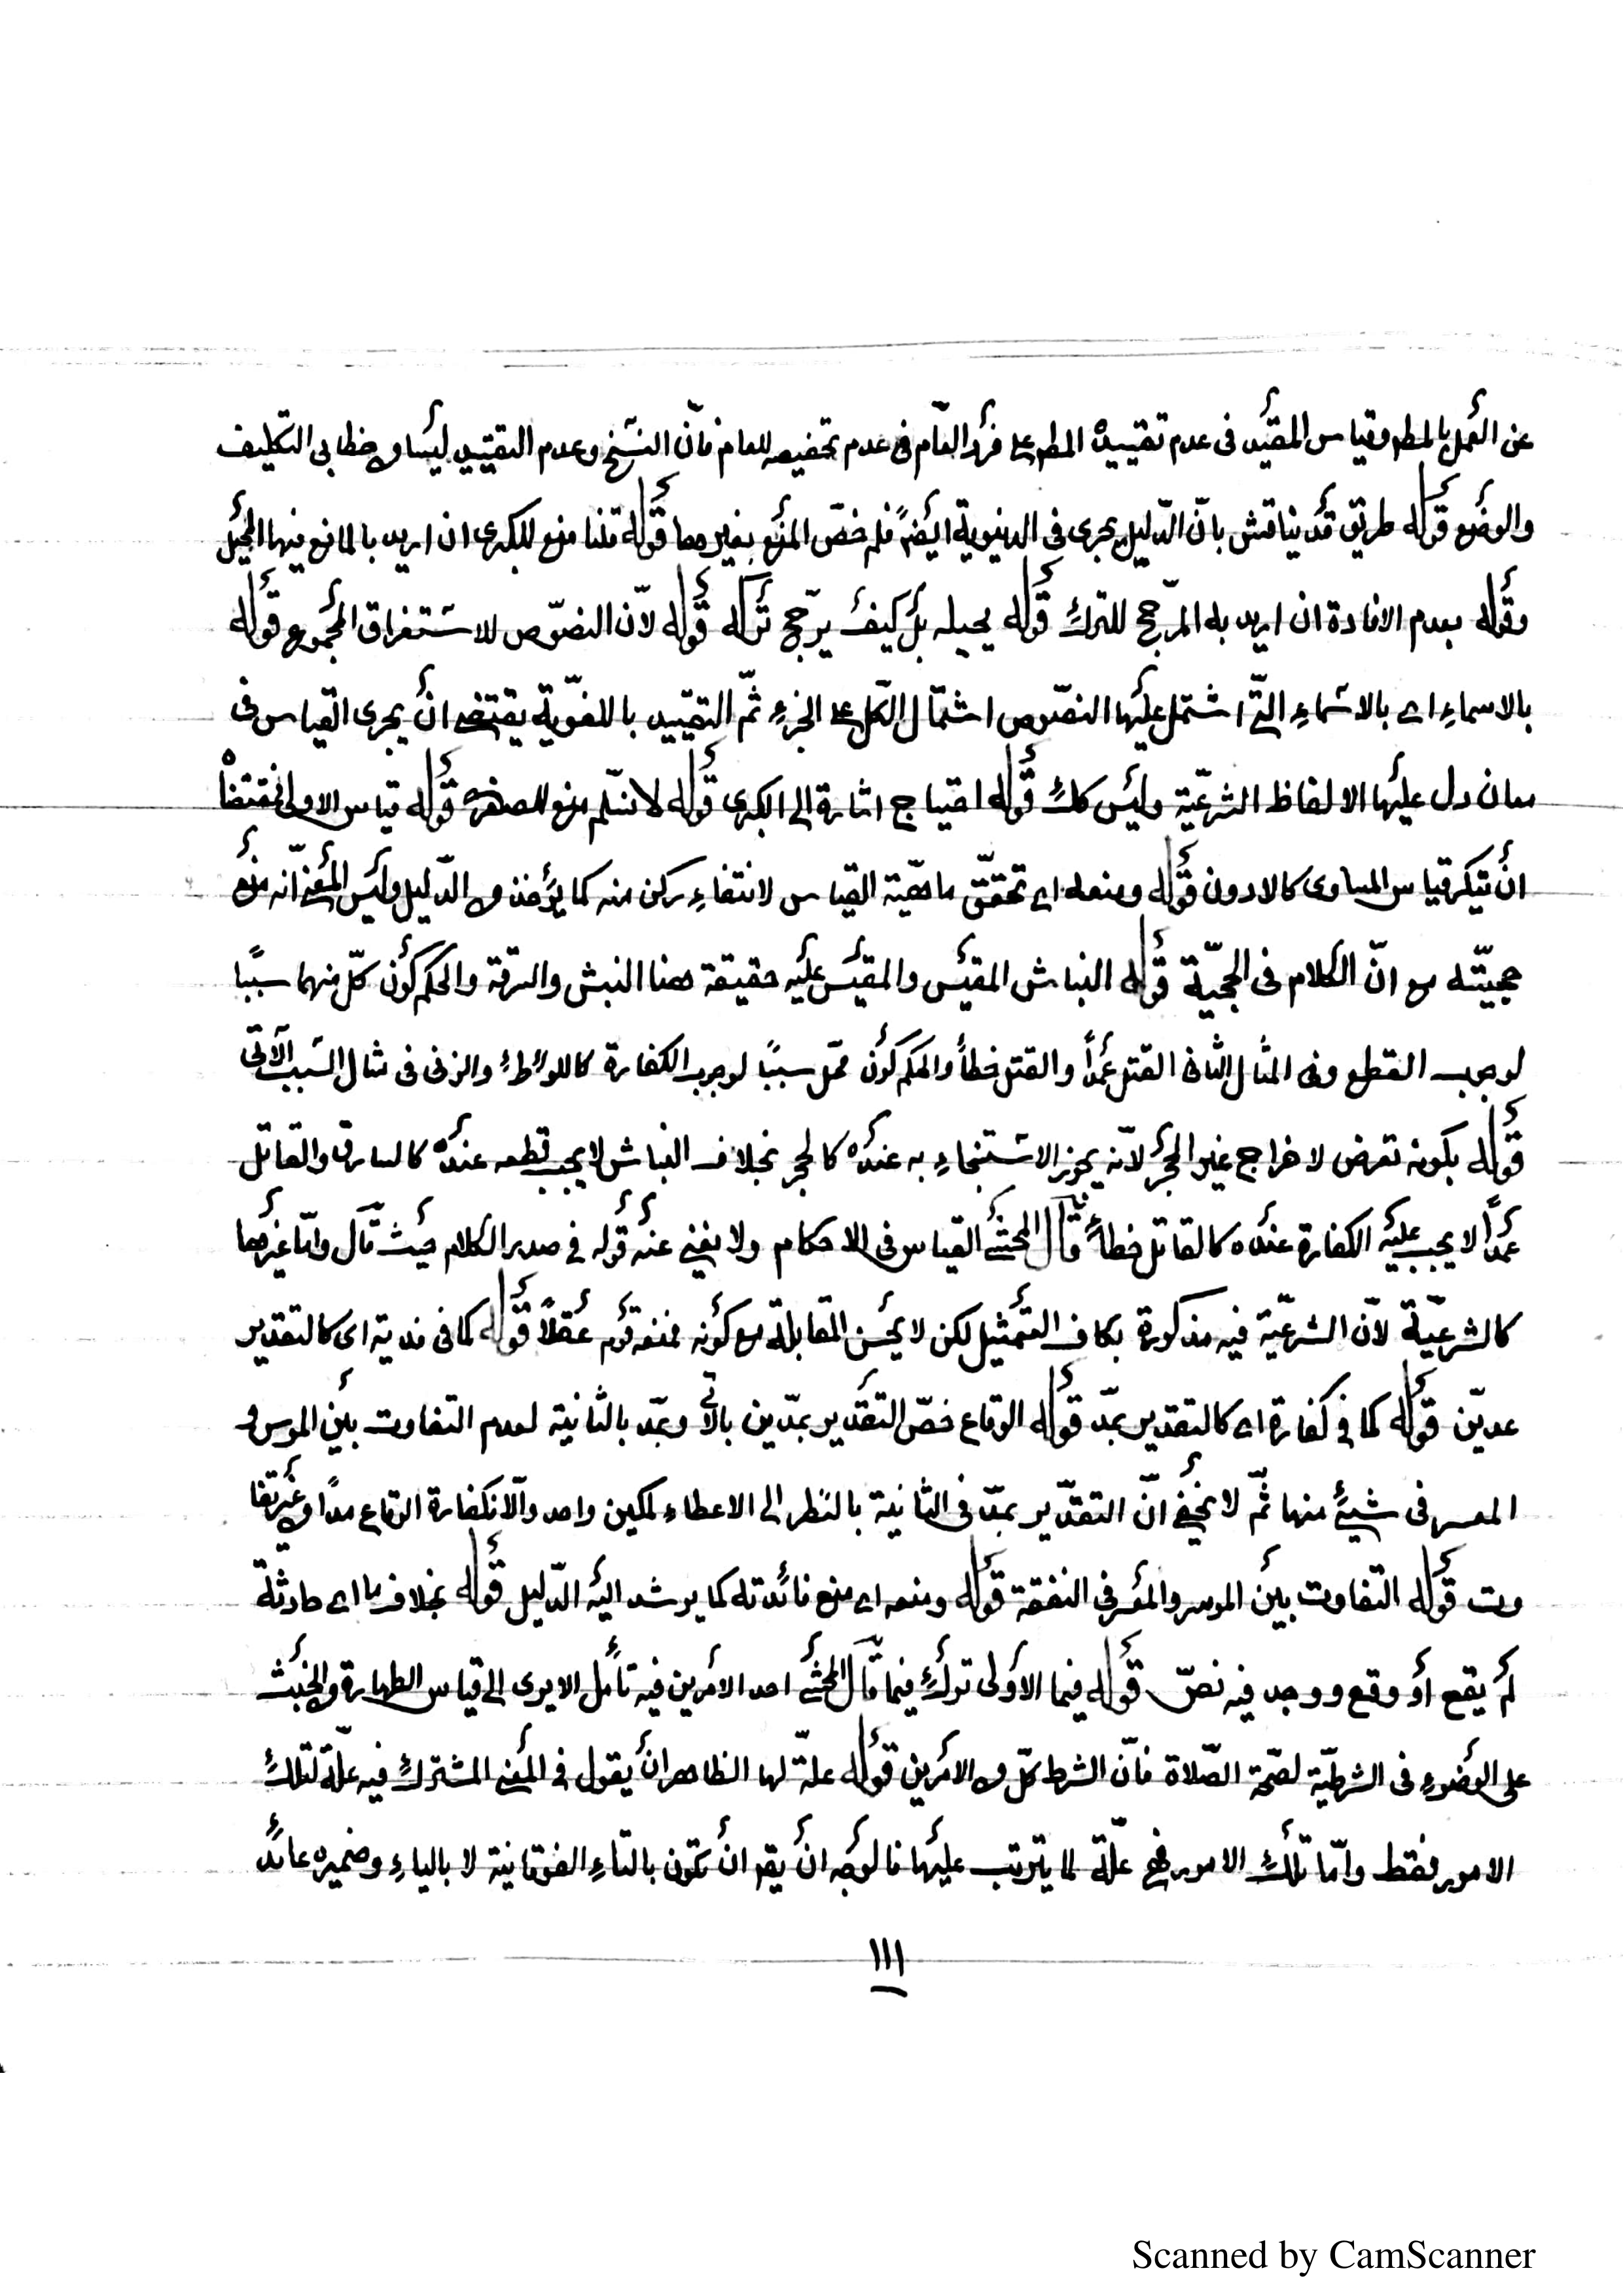 عن العمل بالمطـ وقياس المقيد فى عدم تقييده المطـ على فرد العام فى عدم تخصيصه للعام فانّ النسخ وعدم التقييد ليسا من خطابى التكليف
والوضع قوله طريق قد يناقش بانّ الدّليل يجرى فى الدنيوية ايضًا فلم خصّ المنع بغيرها قوله قلنا منع للكبرى ان اريد بالمانع فيها المحيل
وقوله بعدم الافادة ان اريد به المرجّح للترك قوله يحيله بل كيف يرجّح تركه قوله لانّ النصوص للاستغراق المجموع قوله
بالاسماء اى بالاسماء التى اشتمل عليها النصوص اشتمال الكل على الجزء ثمّ التقييد باللغويّة يقتضى ان يجرى القياس فى
معان دل عليها الالفاظ الشرعيّة وليس كك قوله احتياج اشارة الى الكبرى قوله لا نسلّم منع للصغرى قوله قياس الاولى فمقتضاه
ان ينكر قياس المساوى كالادون قوله ومنعه اى تحقّق ماهيّة القياس لانتفاء ركن منه كما يؤخذ من الدّليل وليس المعنى انّه منع
حجيّته مع انّ الكلام فى الحجيّة قوله النباش المقيس والمقيس عليه حقيقة هنا النبش والسرقة والحكم كون كلّ منهما سببًا
لوجوب القطع وفى المثال الثانى القتل عمدًا والقتل خطأً والحكم كون كل سببًا لوجوب الكفارة كاللواط والزنى فى مثال السبب الآتى
قوله بكونه تعرض لاخراج غير الحجر لانّه يجوز الاستنجاء به عنده كالحجر بخلاف النباش لا يجب قطعه عنده كالسارق والقاتل
عمدًا لا يجب عليه الكفارة عنده كالقاتل خطأً قال المحشّى القياس فى الاحكام ولا يغنى عنه قوله فى صدر الكلام حيث قال وامّا غيرها
كالشرعيّة لانّ الشرعيّة فيه مذكورة بكاف التمثيل لكن لا يحسن المقابلة مع كونه منعه قوم عقلًا قوله كما فى فدية اى كالتقدير
بمدّين قوله كما فى كفارة اى كالتقدير بمدّ قوله الوقاع خصّ التقدير بمدّين بالآتى وبمدّ بالثانية لعدم التفاوت بين الموسر و
المعسر فى شيئ منها ثمّ لا يخفى انّ التقدير بمدّ فى الثانية بالنظر الى الاعطاء لمسكين واحد والّا فكفارة الوقاع مدًا من غير تفا
وت قوله التفاوت بين الموسر والمعسر فى النفقة قوله ومنعه اى منع فائدته كما يرشد اليه الدّليل قوله بخلاف ما اى حادثة
لم يقع او وقع ووجد فيه نصّ قوله فيما الاولى ترك فيما قال المحشّى احد الامرين فيه تأمّل الا يرى الى قياس الطهارة والخبث
على الوضوء فى الشرطيّة لصحّة الصّلاة فانّ الشرط كلّ من الامرين قوله علّة لها الظاهر ان يقول فى المعنى المشترك فيه علّة لتلك
الامور فقط وامّا تلك الامور فهى علّة لما يترتب عليها فالوجه ان يقـ ان تكون بالتاء الفوقانية لا بالياء وضميره عائد
١١١
Scanned by CamScanner